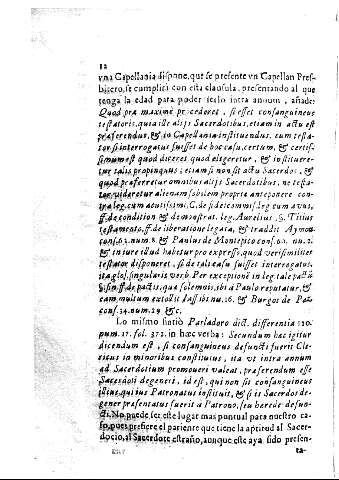 12
vna Capellania dispone, que se presente vn Capellan Pres-
bitero, se cumpliria con esta clausula, presentando al que
tenga la edad para poder serlo intra annum, añade:
Quod præ maximè procederet, si esset consanguineus
testatoris, quia ille aliis Sacerdotibus, etiam in actu est
præferendus, & in Capellania instituendus, cum testa-
tor si interrogatus fuisset de hoc casu, certum, & certis-
simum est quod diceret, quod elegeretur, & institueret-
tur talis propinquus, etiamsi non sit actu Sacerdos, &
quod præferretur omnibus aliis Sacerdotibus, ne testa-
tor videretur alienam sobolem propriæ anteponere con-
tra leg. cum acutissimi, C. de fideicommis. leg. cum avus,
ff. de condition & demonstrat. leg. Aurelius, §. Titius
testamento, ff. de liberatione legata, & traddit Aymon
cons. 63. num. 8. & Paulus de Montepico cons. 60. nu. 2.
& in iure illud habetur pro expresso, quod verisimiliter
testator disponeret, si de tali casu fuisset interrogatus,
ita glos. singularis verb. Per exceptione in leg. tale pactũ
§. fin. ff. de pactis, quæ solemnis, ibi à Paulo reputatur, &
eam multum extollit Jass. ibi nu. 16. & Burgos de Paz
cons. 34. num. 29. &c.
Lo mismo sintiò Parladoro dict. differentia 120.
num. 27. fol. 372. in hæc verba: Secundum hæc igitur
dicendum est, si consanguineus defuncti fuerit Cle-
ricus in minoribus constitutus, ita vt intra annum
ad Sacerdotium promoveri valeat, præferendum esse
Sacerdoti degeneri, id est, qui non sit consanguineus
illius, qui ius Patronatus instituit, & si is Sacerdos de-
gener præsentatus fuerit à Patrono, seu herede defun-
cti. No puede ser este lugar mas puntual para nuestro ca-
so, pues prefiere el pariente que tiene la aptitud al Sacer-
docio, al Sacerdote estraño, aunque este aya sido presen-
ta-